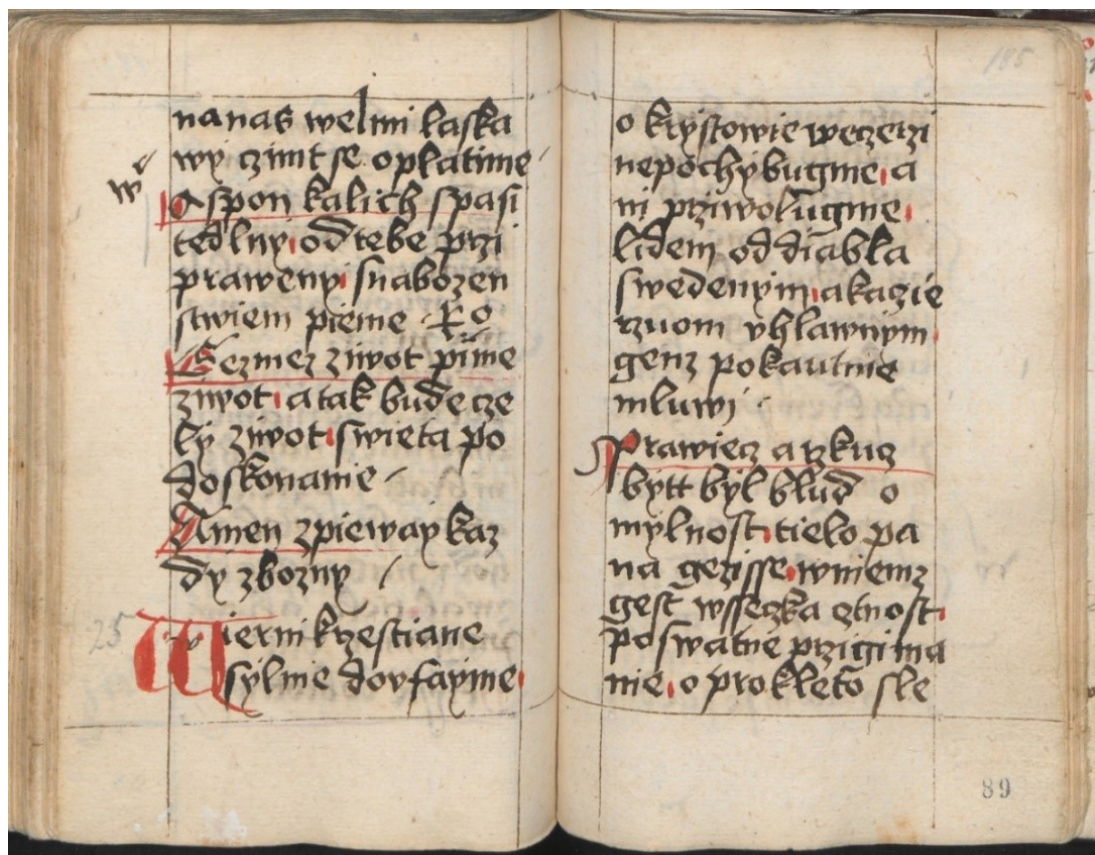 na nas welmi laska
wy czimt se oplatime
we
Aspon kalich spasi
tedlny od tebe przi
praweny snabozen
stwiem pieme Ro
Wezmez ziwot pime
ziwot a tak bude cze
ly ziwot swieta po
doskonanie
Amen zpieway kaz
dy zbozny
25
Wierni krzestiane
sylnie doufayme
185
o krystowie weczerzi
nepochybugme a
ni prziwolugme
lidem od diabla
swedenym a kazie
rzuom vhlawnym
genz pokautnie
mluwi
Prawiecz a rzkucz
bytt byl blud o
mylnost tielo pa
na gezisse w niemz
gest wsseczka ctnost
poswatne przigima
nie o prokleto sle
89